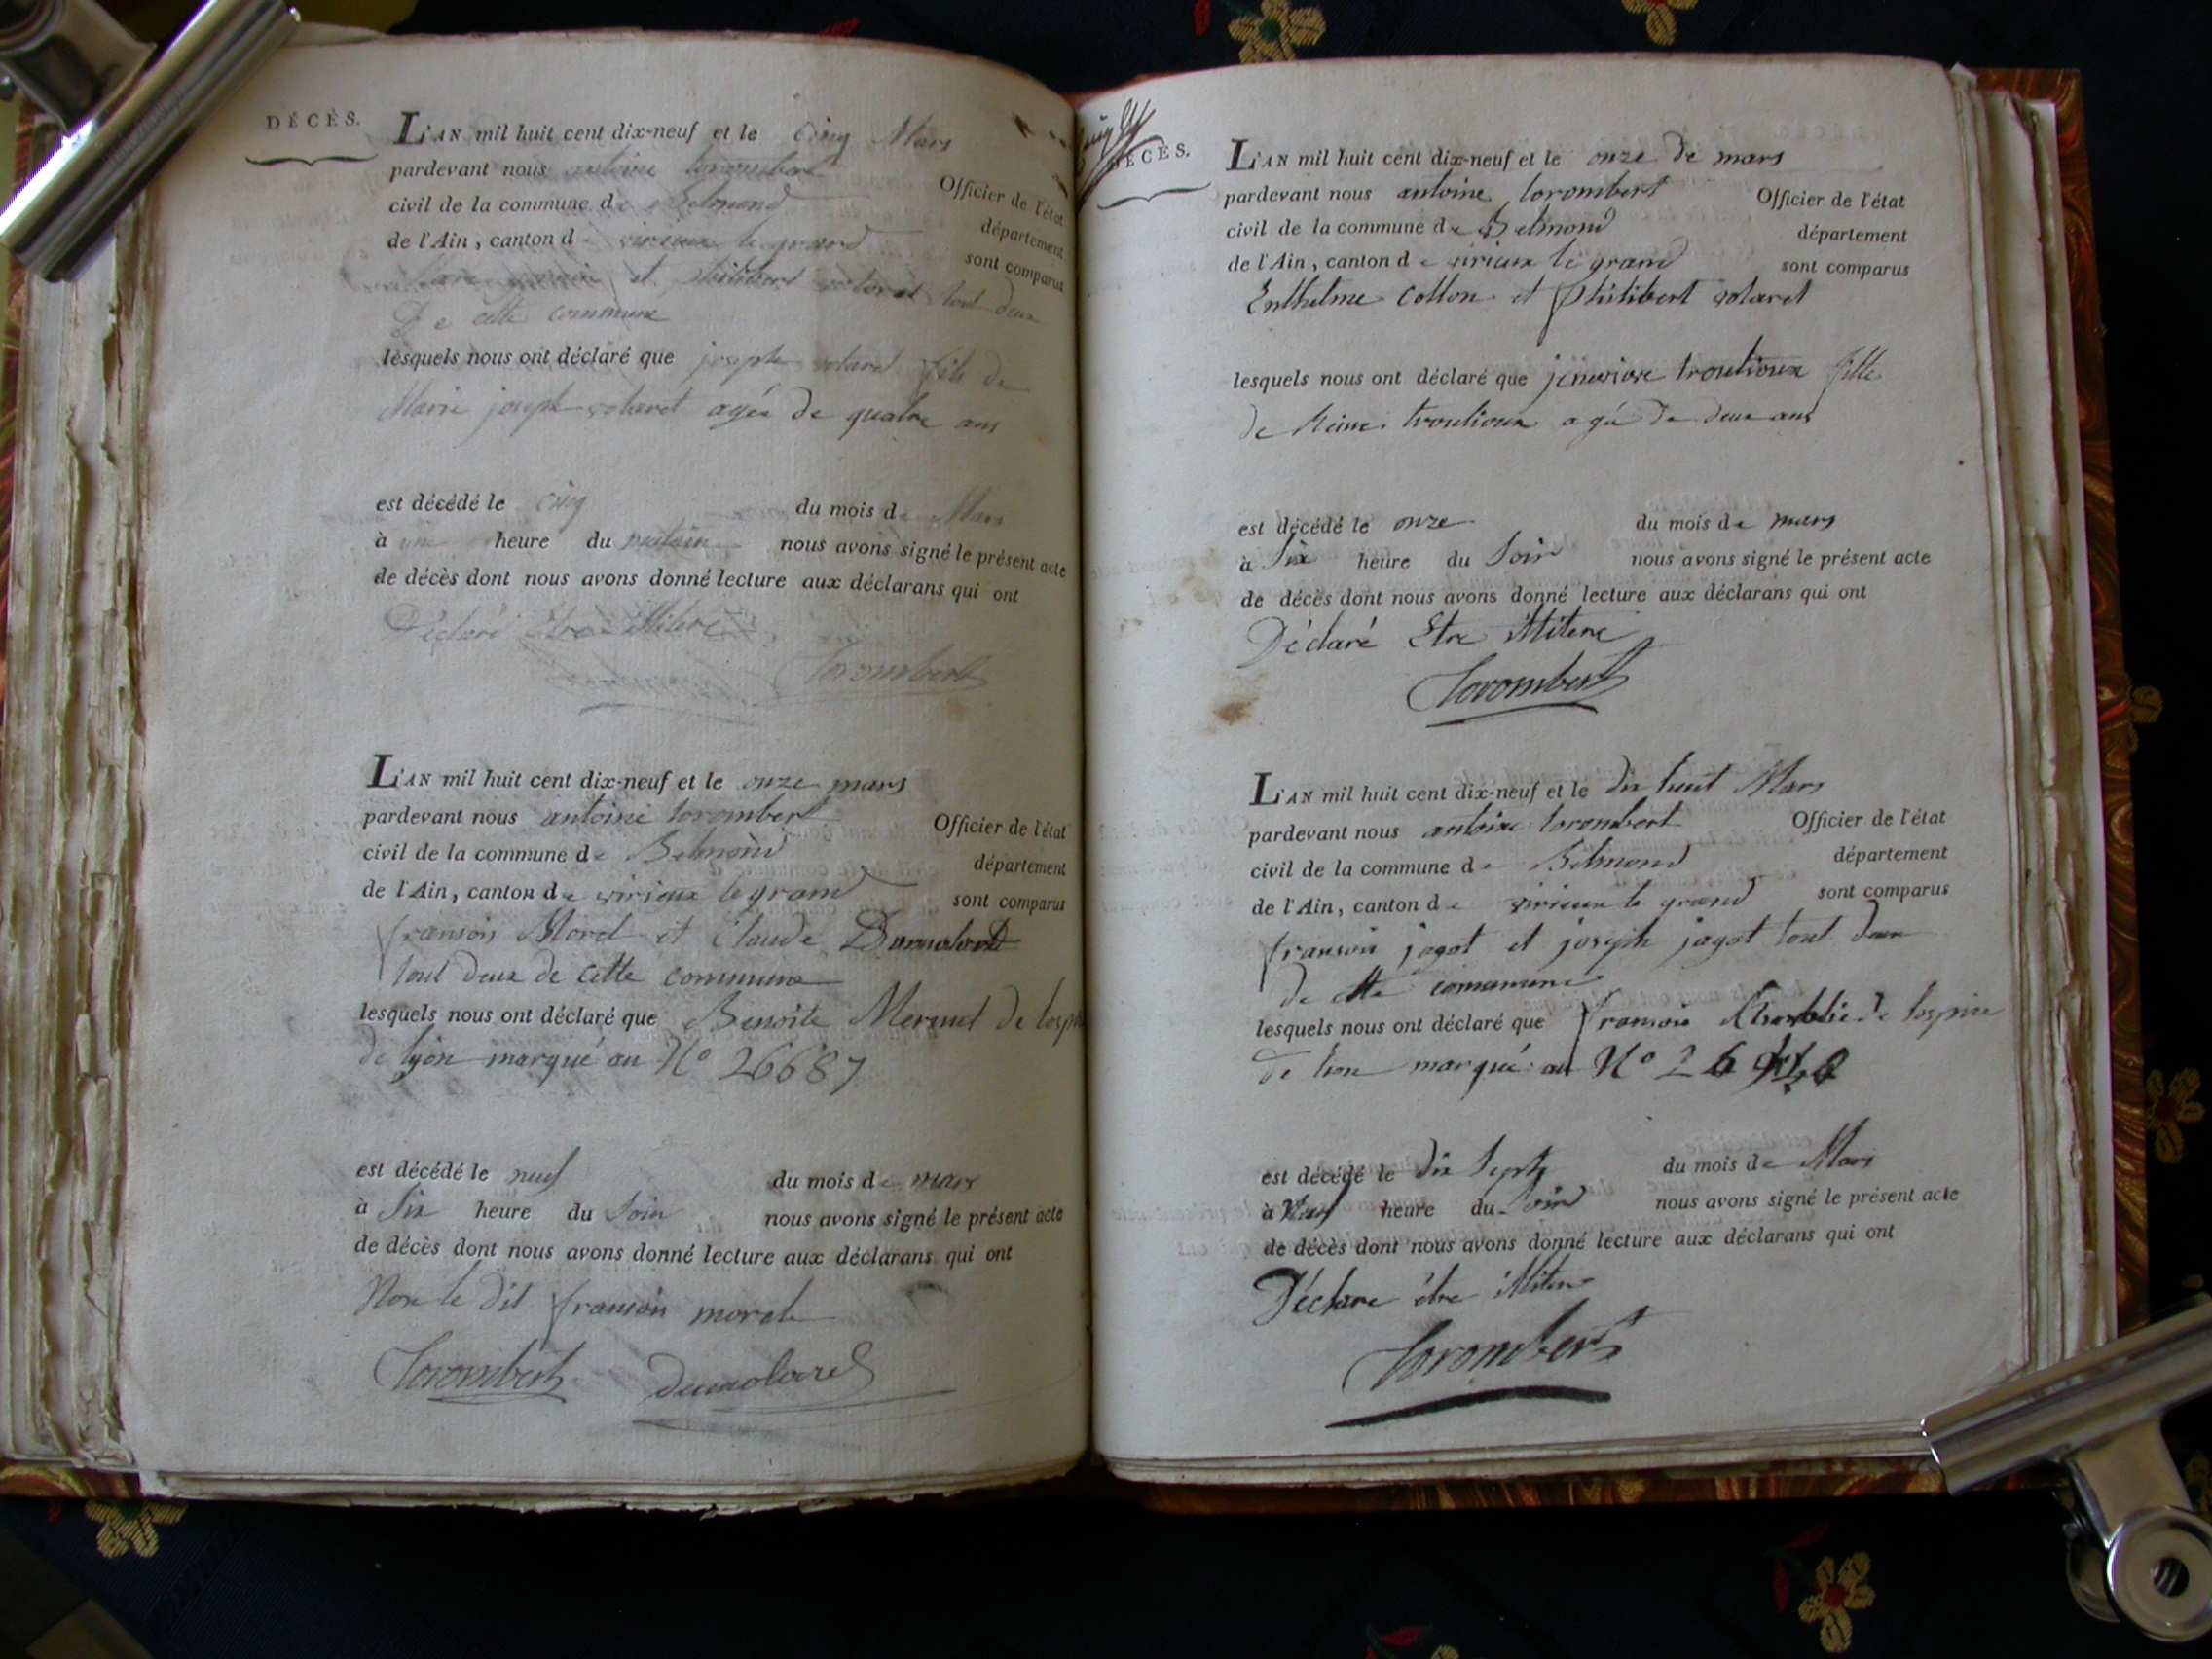 DÉCÈS.
L'AN mil huit cent dix-neuf et le Cinq Mars
pardevant nous antoine Lorombert Officier de l'état
civil de la commune de Belmond département
de l'Ain, canton de virieux le grand sont comparus
et philibert volaret tout deux
De cette commune
lesquels nous ont déclaré que joseph volaret fils de
Marie joseph volaret agée de quatre ans
est décédé le cinq du mois de Mars
à une heure du matein nous avons signé le présent acte
de décès dont nous avons donné lecture aux déclarans qui ont
Déclaré Etre illitere
Lorombert
L'AN mil huit cent dix-neuf et le onze mars
pardevant nous antoine Lorombert Officier de l'état
civil de la commune de Belmond département
de l'Ain, canton de virieux le grand sont comparus
fransois Morel et Claude
tout deux de cette commune
lesquels nous ont déclaré que Benoite Mermet de
de lyon marqué au N° 26687
est décédé le neuf du mois de mars
à Six heure du Soir nous avons signé le présent acte
de décès dont nous avons donné lecture aux déclarans qui ont
Non le dit fransois morel
Lorombert
DÉCÈS.
L'AN mil huit cent dix-neuf et le onze de mars
pardevant nous antoine Lorombert Officier de l'état
civil de la commune de Belmond département
de l'Ain, canton de virieux le grand sont comparus
Enthelme Collon et Philibert volaret
lesquels nous ont déclaré que jenevieve troulioux fille
de Reine troulioux agé De deux ans
est décédé le onze du mois de mars
à Six heure du Soir nous avons signé le présent acte
de décès dont nous avons donné lecture aux déclarans qui ont
Déclaré Etre illitere
Lorombert
L'AN mil huit cent dix-neuf et le dix huit Mars
pardevant nous antoine Lorombert Officier de l'état
civil de la commune de Belmond département
de l'Ain, canton de virieux le grand sont comparus
fransois jagot et joseph jagot tout deux
de cette comumune
lesquels nous ont déclaré que fransois de lospice
De lion marqué au N°
est décédé le dix Septz du mois de Mars
à Neuf heure du Soir nous avons signé le présent acte
de décès dont nous avons donné lecture aux déclarans qui ont
Déclare être illitere
Lorombert